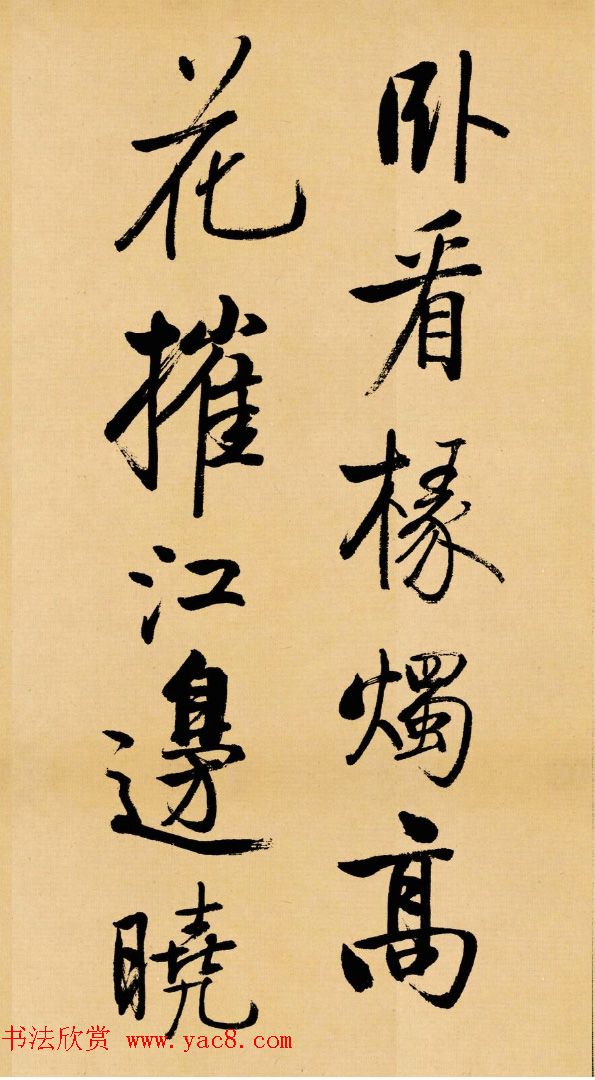 卧看椽燭高
花摧江邊曉
书法欣赏 www.yac8.com